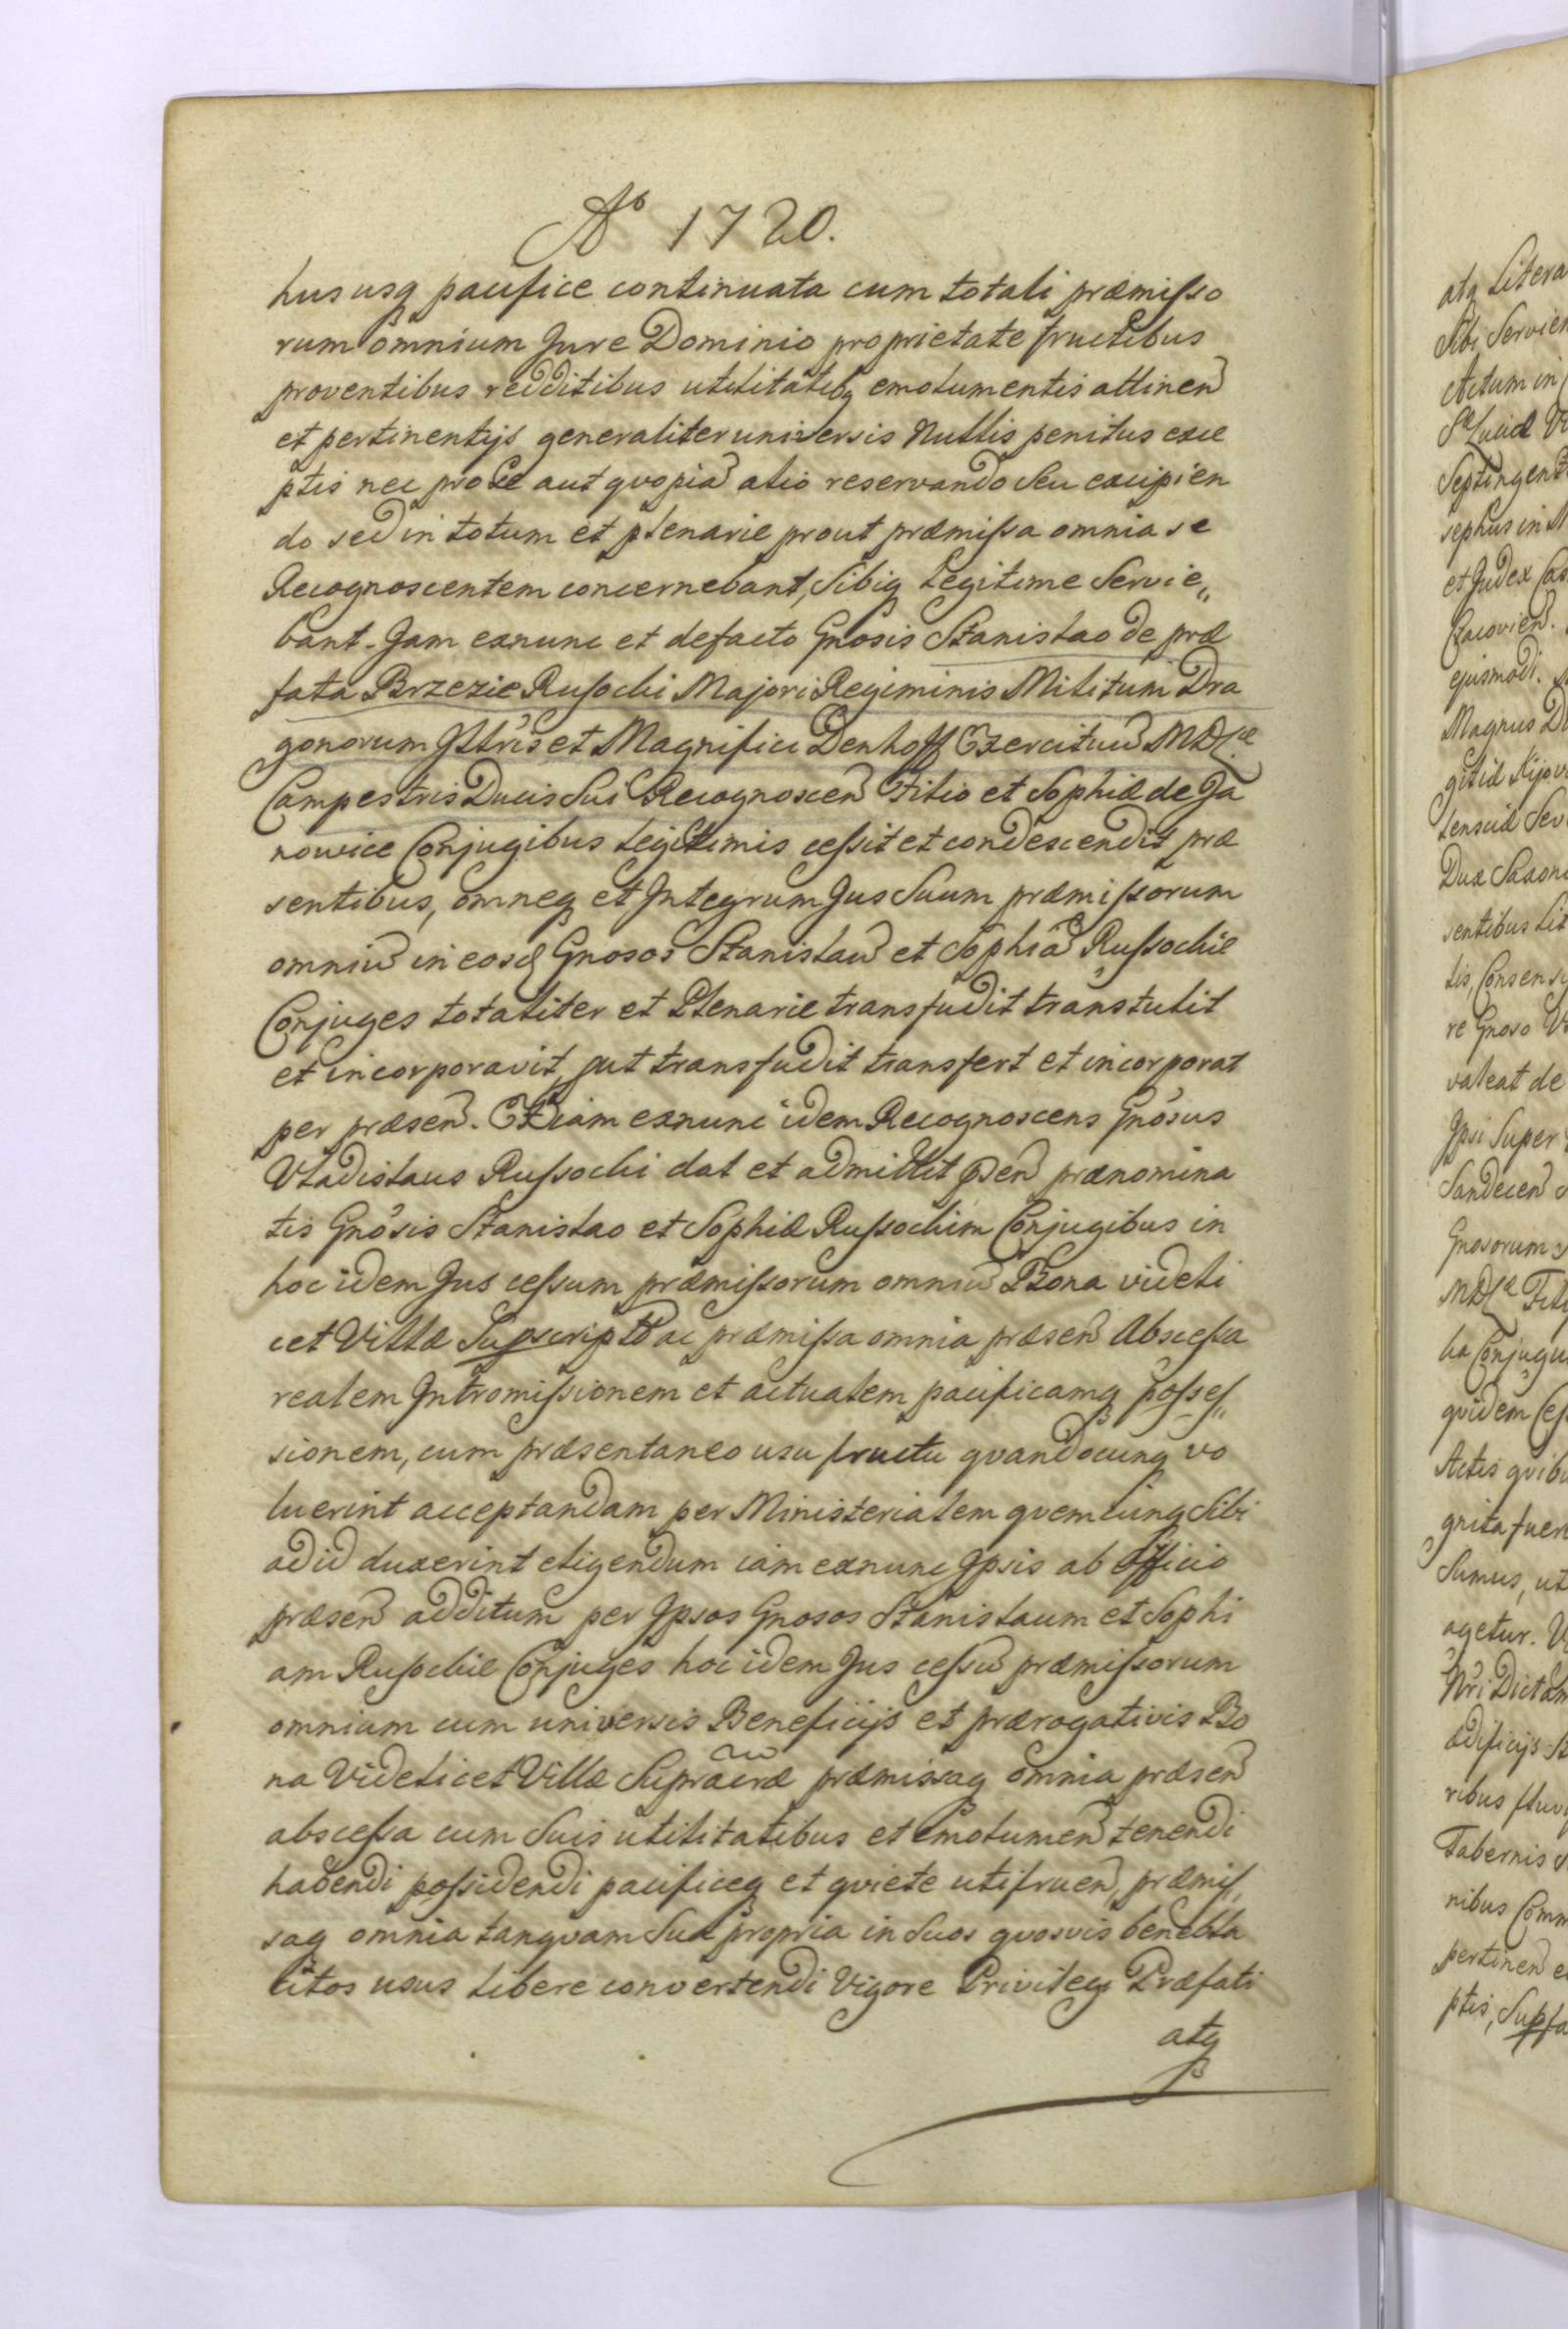 Aº 1720.
hususq pacifice continuata cum totali præmisso
rum omnium Jure Dominio proprietate fructibus
proventibus redditibus utilitatibq emolumentis attinen
et pertinentijs generaliter universis Nullis penitus exce
ptis nec pro se aut qvopiã alio reservando Seu excipien
do sed in totum et plenarie prout præmissa omnia se
Recognoscentem concernebant, Sibiq Legitime Servie„
bant. Jam exnunc et defacto Gnosis Stanislao de præ
fata Brzezie Russocki Majori Regiminis Militum Dra
gonorum Jllris et Magnifici Denhoff Exercituũ MDLæ
Campestris Ducis Sui Recognoscen Filio et Sophiæ de Ja
nowice Conjugibus Legitimis cessit et condescendit præ
sentibus, omneq et Integrum Jus Suum præmissorum
omniũ in eosd Gnosos Stanislaũ et Sophiã Russockie
Conjuges totaliter et Plenarie transfudit transtulit
et incorporavit, put transfudit transfert et incorporat
per præsen. Etiam exnunc idem Recognoscens Gnosus
Vladislaus Russocki dat et admittit psen prænomina
tis Gnosis Stanislao et Sophiæ Russockim Conjugibus in
hoc idem Jus cessum præmissorum omniũ Bona videli
cet Villæ Supscript ac præmissa omnia præsen Abscessa
realem Intromissionem et actualem pacificamq posses„
sionem, cum præsentaneo usu fructu qvandocunq vo
luerint acceptandam per Ministerialem qvemcunq Sibi
ad id duxerint eligendum iam exnunc Ipsis ab Officio
præsen additum per Ipsos Gnosos Stanislaum et Sophi
am Russockie Conjuges hoc idem Jus cessũ præmissorum
omnium cum universis Beneficijs et prærogativis Bo
na Videlicet Villæ præmissaq omnia præsen
abscessa cum Suis utilitatibus et Emolumen tenendi
habendi possidendi pacificeq et qviete utifruen, præmis„
saq omnia tanqvam Sua propria in Suos qvosvis beneplá
citos usus Libere convertendi Vigore Privilegij Præfati
atq
atq Litera
Sibi Servien
Actum in
Sæ Luciæ Vi
Septingent
sephus in M
et Judex Cas
Cracovien.
ejusmodi.
Magnus D
gitiæ Kijov
lensciæ Sev
Dux Saxoni
sentibus Lit
tis, Consensu
re Gnoso V
valeat de
Ipsi Super
Sandecen
Gnosorum
MDLæ Fili
ha Conjugu
qvidem Ces
Actis qvibu
gnita fuer
Sumus, ut
agetur. V
Nri Dictam
ædificijs
ribus fluv
Tabernis
nibus Comm
pertinen
ptis, Supfa